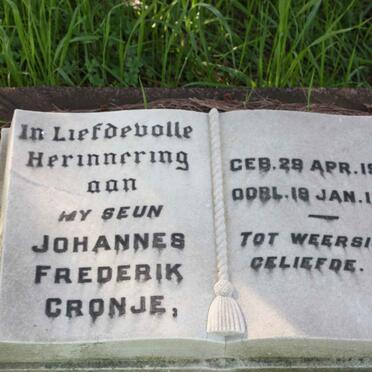 In Liefdevolle
Herinnering
aan
MY SEUN
JOHANNES
FREDERIK
CRONJE,
GEB. 29 APR. 19
OORL. 18 JAN. 1
TOT WEERSI
GELIEFDE.